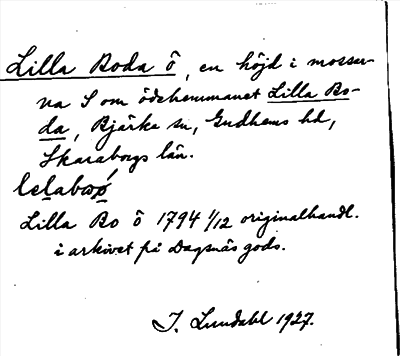 Lilla Boda ö, en höjd i mosser-
na S om ödehemmanet Lilla Bo-
da, Bjärke sn, Gudhems hd,
Skaraborgs län.
Lilla Bo ö 1794 1/12 originalhandl.
i arkivet på Dagsnäs gods.
J. Lundahl 1927.